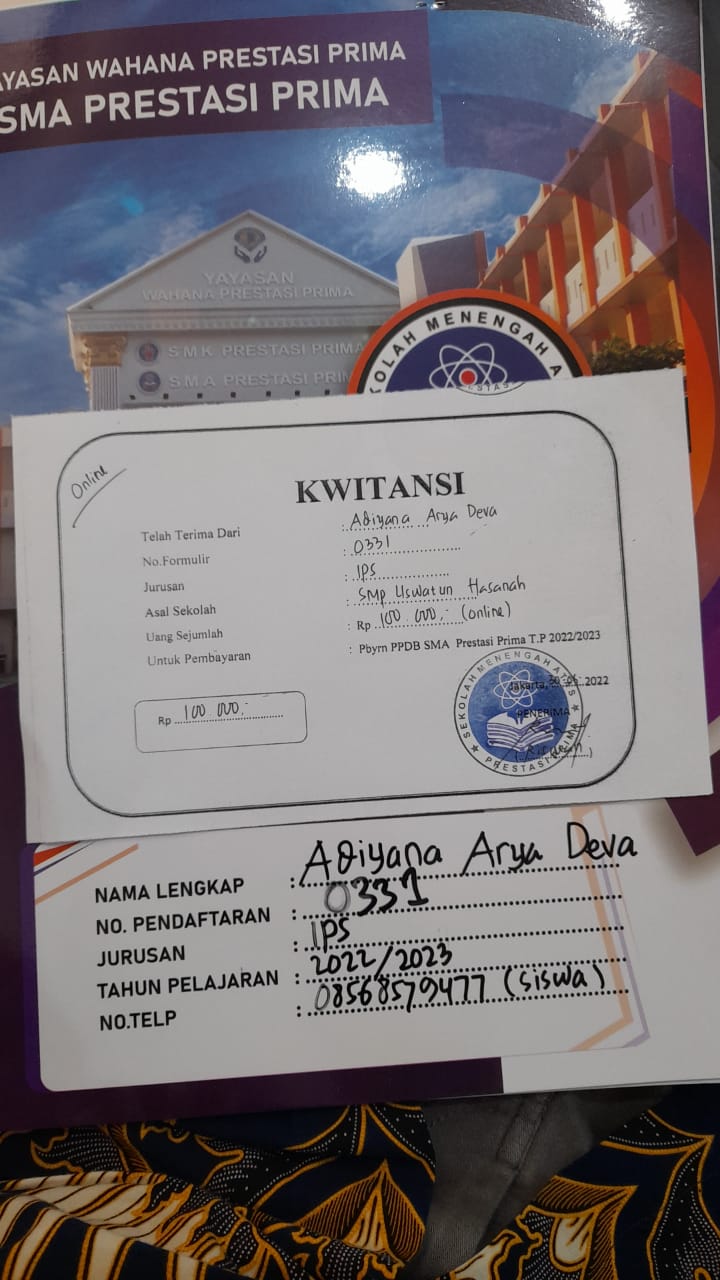 AYASAN WAHANA PRESTASI PRIMA
SMA PRESTASI PRIMA
YAYASAN
WAHANA PRESTASI PRIMA
SMK PRESTASI PRIMA
SMA PRESTASI PRIM
OLAH MENENGAH A
Online
KWITANSI
Telah Terima Dari : Adiyana Arya Deva
No.Formulir : 0331
Jurusan : IPS
Asal Sekolah : SMP Uswatun Hasanah
Uang Sejumlah : Rp 100.000,- (online)
Untuk Pembayaran : Pbyrn PPDB SMA Prestasi Prima T.P 2022/2023
Jakarta, 2022
Rp 100.000,-
PENERIMA
SEKOLAH MENENGAH ATAS
PRESTASI PRIMA
NAMA LENGKAP : Adiyana Arya Deva
NO. PENDAFTARAN : 0331
JURUSAN : IPS
TAHUN PELAJARAN : 2022/2023
NO.TELP : 08568579477 (siswa)